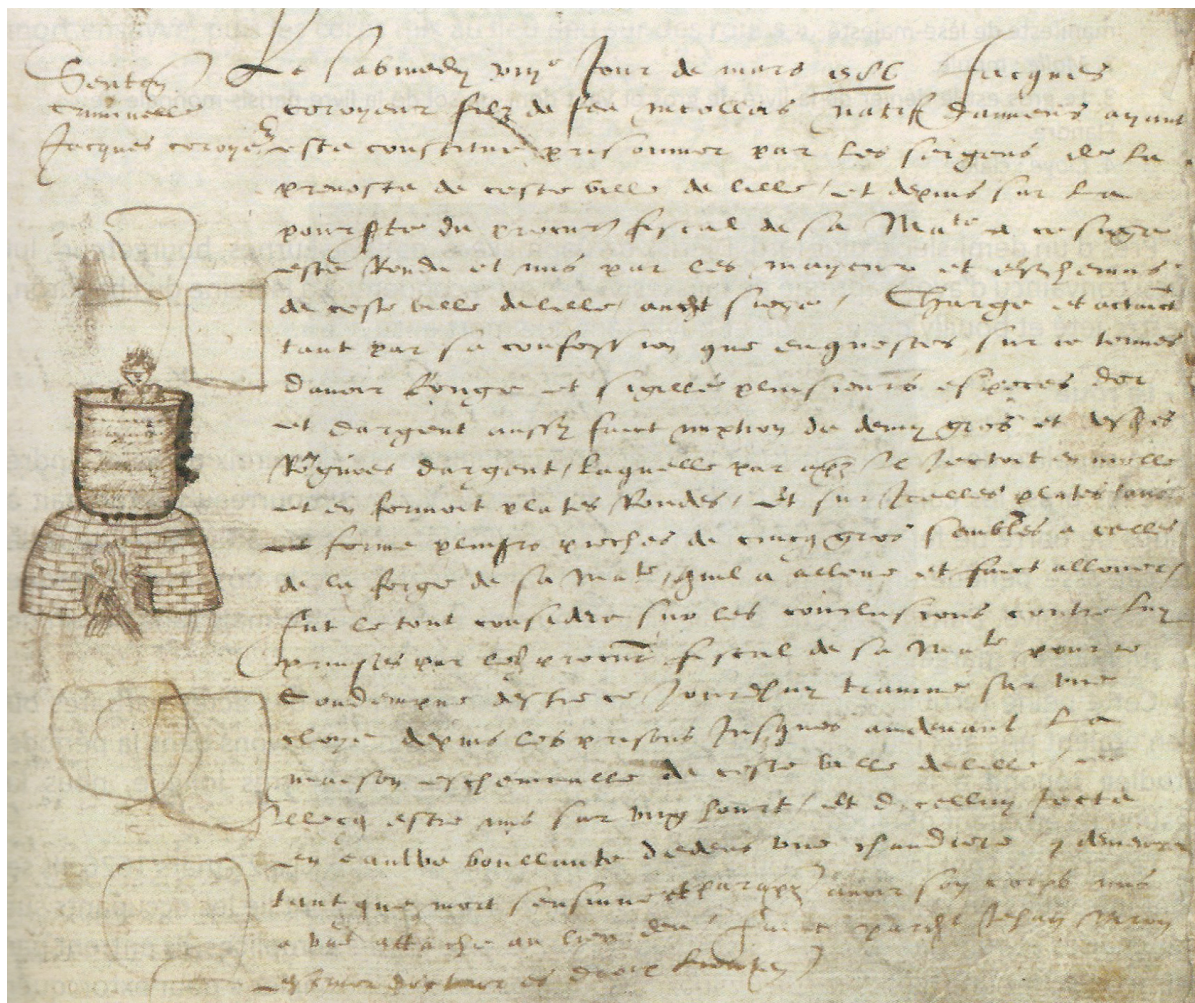 Senten
criminelle
Jacques coroyer
Le sabmedy viije Jour de mars 1586 Jacques
coroyeur filz de feu nicollas natif damiens ayant
este constitue prisonnier par les sergens de la
prevoste de ceste ville de lille / et depuis sur la
du procur fiscal de sa Mate a ce siege
este Rendu et mis par les mayeur et eschevins
de ceste ville de lille / audit siege / Charge et actainct
tant par sa confession que enquestes sur ce tenues
davoir Rongé et sigillé plusieurs especes dor
et dargent aussy faict mixtion de demy gros et
dargent / laquelle par apz Il Jectoit en molle
et en formoit plates Rondes / Et sur Icelles plates avoit
forme pieches de cincq gros semblés a celles
de la forge de sa Mate / quil a alloué et faict allouer /
fut le tout considere sur les conclusions contre luy
prinses par led procur fiscal de sa Mate pour ce
Condempne destre ce Jourdhuy traine sur une
cloye depuis les prisons Jusques audevant la
maison eschevinalle de ceste ville de lille /
Illecq estre mis sur ung hourt / et dicelluy Jecté
en eauwe boullante dedens une chaudiere y demeurer
tant que mort sensuive et par apz avoir son corps mis
a une attache au lieu Faict pardt Jehan
es droix